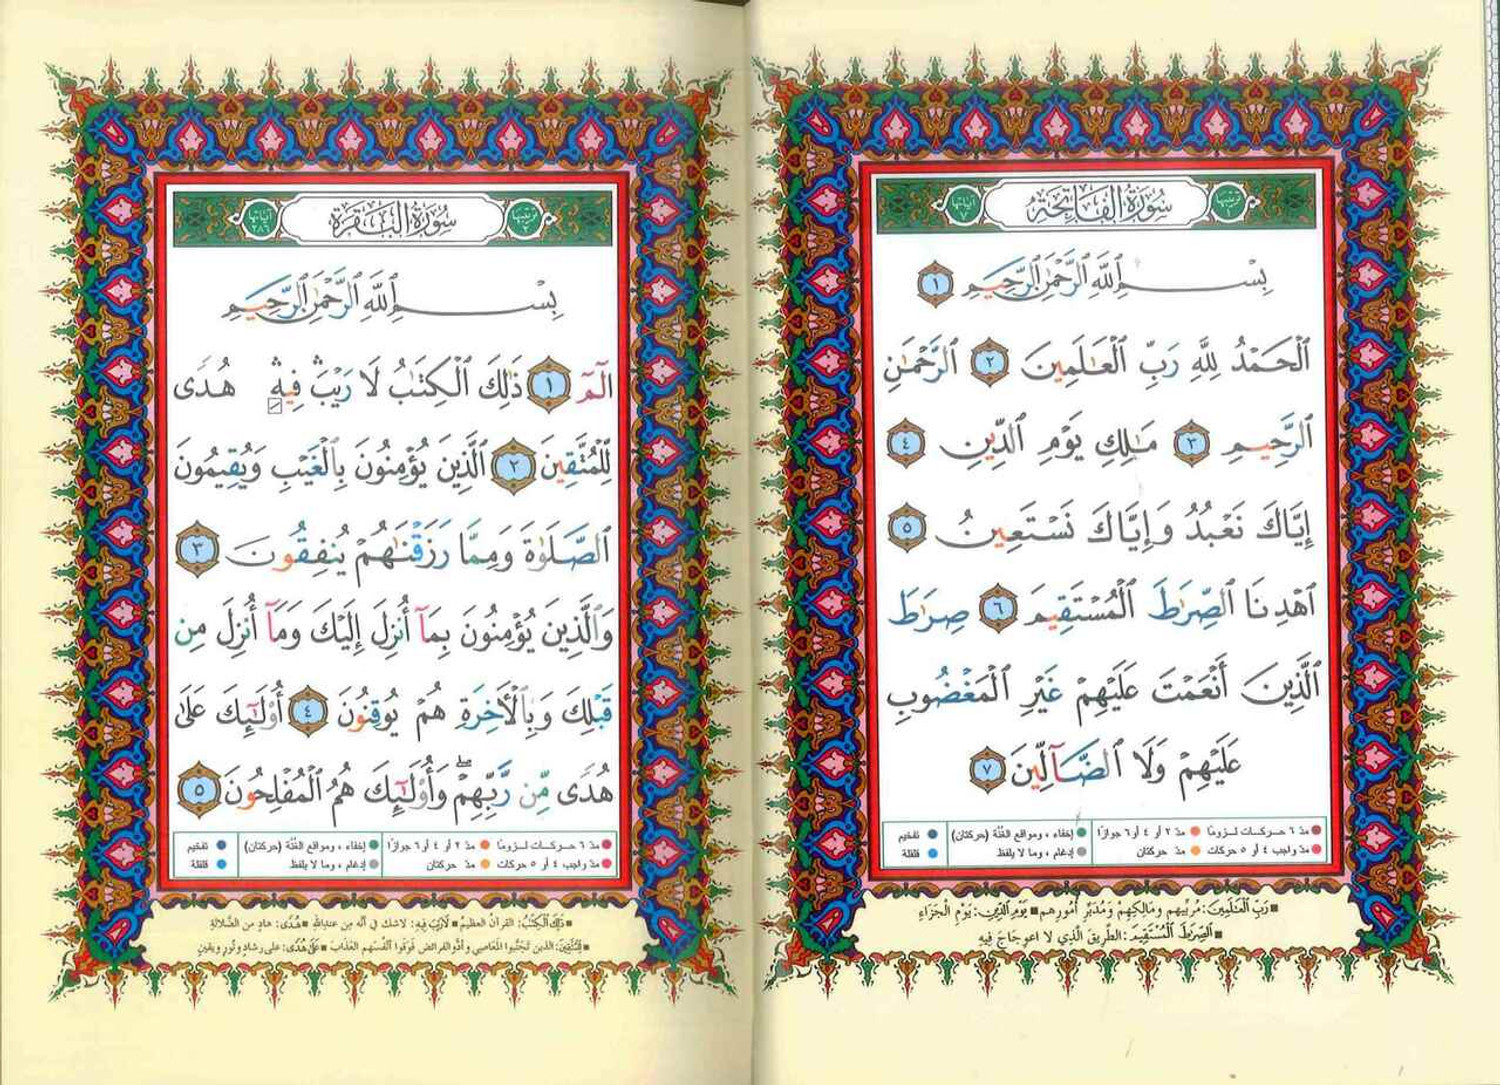 ترتيبها ١ سُورَةُ الفَاتِحَةِ آياتها ٧
بِسْمِ ٱللَّهِ ٱلرَّحْمَٰنِ ٱلرَّحِيمِ ١
ٱلْحَمْدُ لِلَّهِ رَبِّ ٱلْعَٰلَمِينَ ٢ ٱلرَّحْمَٰنِ
ٱلرَّحِيمِ ٣ مَٰلِكِ يَوْمِ ٱلدِّينِ ٤
إِيَّاكَ نَعْبُدُ وَإِيَّاكَ نَسْتَعِينُ ٥
ٱهْدِنَا ٱلصِّرَٰطَ ٱلْمُسْتَقِيمَ ٦ صِرَٰطَ
ٱلَّذِينَ أَنْعَمْتَ عَلَيْهِمْ غَيْرِ ٱلْمَغْضُوبِ
عَلَيْهِمْ وَلَا ٱلضَّآلِّينَ ٧
مدّ ٦ حركات لزومًا مدّ ٢ أو ٤ أو ٦ جوازًا إخفاء، ومواقع الغُنَّة (حركتان) تفخيم
مدّ واجب ٤ أو ٥ حركات مدّ حركتان إدغام، وما لا يلفظ قلقلة
رَبِّ الْعَالَمِينَ: مُرَبِّيهِم وَمَالِكِهِمْ وَمُدَبِّرِ أُمُورِهِم يَوْمِ الدِّينِ: يَوْمِ الْجَزَاءِ
الصِّرَاطَ الْمُسْتَقِيمَ: الطَّرِيقَ الَّذِي لا اعْوِجَاجَ فِيهِ
ترتيبها ٢ سُورَةُ البَقَرَةِ آياتها ٢٨٦
بِسْمِ ٱللَّهِ ٱلرَّحْمَٰنِ ٱلرَّحِيمِ
الٓمٓ ١ ذَٰلِكَ ٱلْكِتَٰبُ لَا رَيْبَۛ فِيهِۛ هُدًى
لِّلْمُتَّقِينَ ٢ ٱلَّذِينَ يُؤْمِنُونَ بِٱلْغَيْبِ وَيُقِيمُونَ
ٱلصَّلَوٰةَ وَمِمَّا رَزَقْنَٰهُمْ يُنفِقُونَ ٣
وَٱلَّذِينَ يُؤْمِنُونَ بِمَآ أُنزِلَ إِلَيْكَ وَمَآ أُنزِلَ مِن
قَبْلِكَ وَبِٱلْأَخِرَةِ هُمْ يُوقِنُونَ ٤ أُوْلَٰٓئِكَ عَلَىٰ
هُدًى مِّن رَّبِّهِمْۖ وَأُوْلَٰٓئِكَ هُمُ ٱلْمُفْلِحُونَ ٥
مدّ ٦ حركات لزومًا مدّ ٢ أو ٤ أو ٦ جوازًا إخفاء، ومواقع الغُنَّة (حركتان) تفخيم
مدّ واجب ٤ أو ٥ حركات مدّ حركتان إدغام، وما لا يلفظ قلقلة
ذَلِكَ الْكِتَابُ: القرآن العظيم لَا رَيْبَ فِيهِ: لاشك في أنّه مِن عندِ الله هُدًى: هادٍ من الضَّلالةِ
لِلْمُتَّقِينَ: الذين تَجَنَّبوا المعاصي وأدَّوا الفرائض فَوَقَوْا أنفُسَهم العَذابَ عَلَى هُدًى: على رشادٍ ونُورٍ ويقينٍ